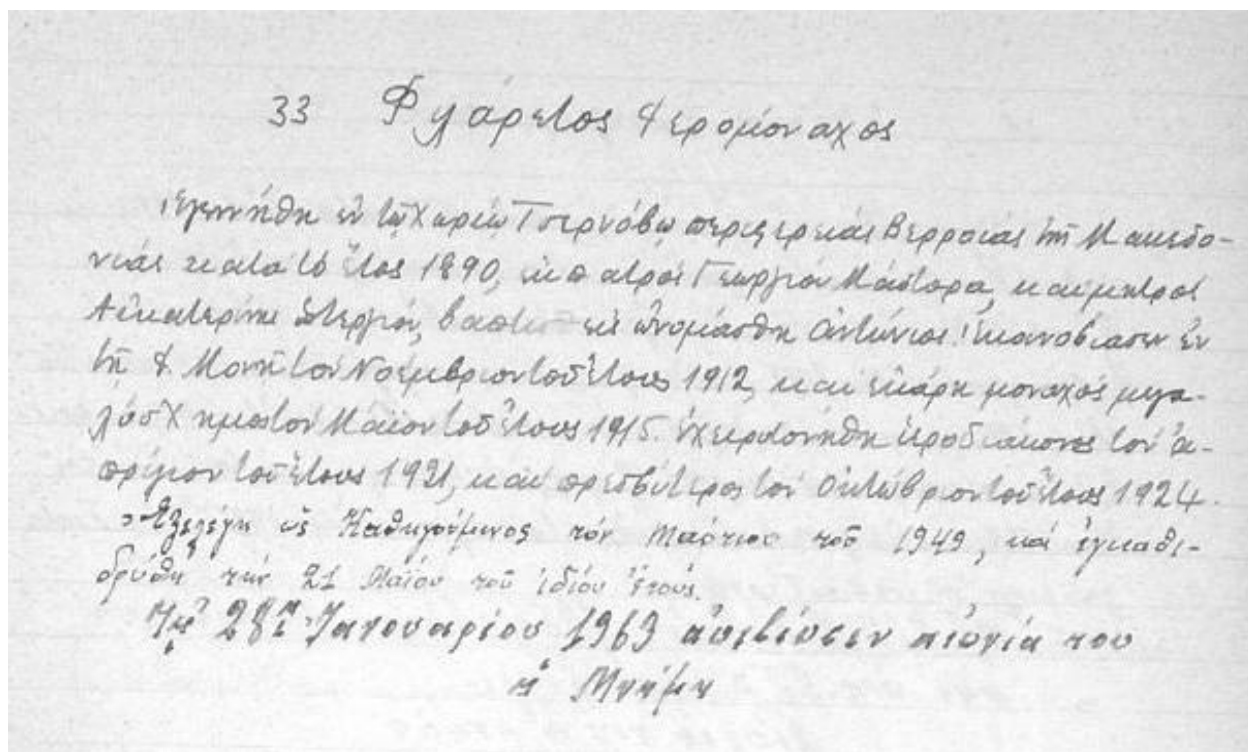 33 Φιλάρετος Ἱερομόναχος
Ἐγεννήθη ἐν τῷ Χωρίῳ Τσερνόβῳ περιφερείας Βερροίας τῆς Μακεδο-
νίας κατὰ τὸ ἔτος 1890, ἐκ πατρὸς Γεωργίου Μάστορα, καὶ μητρὸς
Αἰκατερίνης Στεργίου, βαπτισθεὶς ὠνομάσθη Ἀντώνιος. Ἐκοινοβίασεν ἐν
τῇ Ἱ. Μονῇ τὸν Νοέμβριον τοῦ ἔτους 1912, καὶ ἐκάρη μοναχὸς μεγα-
λόσχημος τὸν Μάϊον τοῦ ἔτους 1915. ἐχειροτονήθη ἱεροδιάκονος τὸν ἀ-
πρίλιον τοῦ ἔτους 1921, καὶ πρεσβύτερος τὸν Ὀκτώβριον τοῦ ἔτους 1924.
Ἐξελέγη ὡς Καθηγούμενος τόν Μάρτιο τοῦ 1949, καί ἐγκαθι-
δρύθη τήν 21 Μαΐου τοῦ ἰδίου ἔτους.
Τῇ 28ῃ Ἰανουαρίου 1963 ἀπεβίωσεν αἰωνία του
ἡ Μνήμη